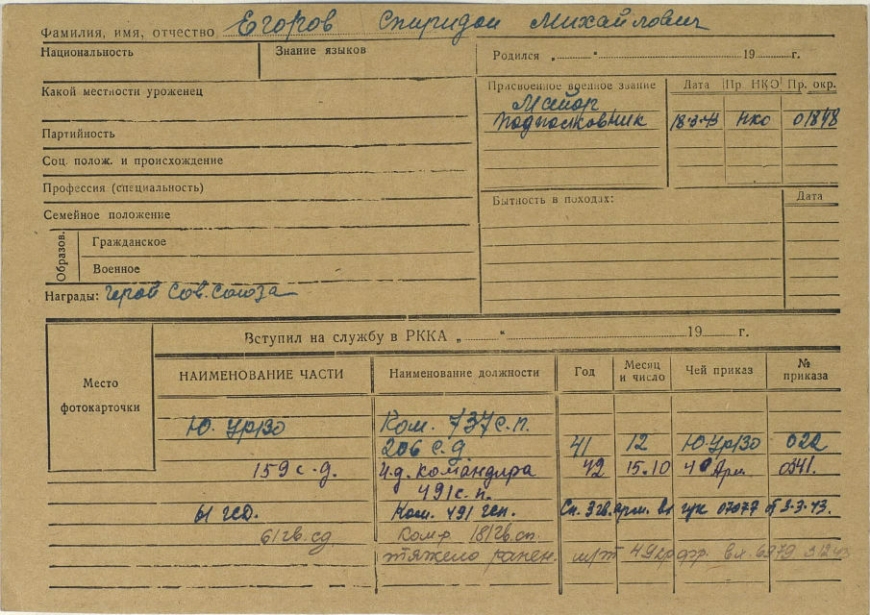 Фамилия, имя, отчество Егоров Спиридон Михайлович
Национальность Знание языков Родился „ " 19 г.
Какой местности уроженец
Присвоенное военное звание Дата Пр. НКО Пр. окр.
Майор
Подполковник 18.3.43 НКО 01848
Партийность
Соц. полож. и происхождение
Профессия (специальность)
Семейное положение
Бытность в походах: Дата
Образов.
Гражданское
Военное
Награды: Герой Сов. Союза
Вступил на службу в РККА „ " 19 г.
Место фотокарточки
НАИМЕНОВАНИЕ ЧАСТИ Наименование должности Год Месяц и число Чей приказ № приказа
Ю. УрВО Ком. 737 с.п.
206 с.д. 41 12 Ю.УрВО 022
159 с.д. И.д. командира 42 15.10 Арм 0541.
491 с.п.
61 гсд. Ком. 491 Сп. 3 гв. арм. гук 07077 от 9.3.43.
61 гв. сд ком-р 181 гв. сп.
тяжело ранен. фр. вх. 6979